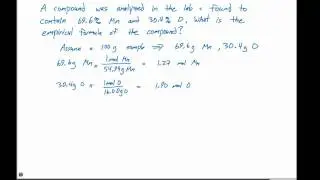 A compound was analyzed in the lab + found to
contain 69.6% Mn and 30.4% O. What is the
empirical formula of the compound?
Assume a 100g sample ⇒ 69.6g Mn, 30.4g O
69.6g Mn × 1 mol Mn / 54.94g Mn = 1.27 mol Mn
30.4g O × 1 mol O / 16.00g O = 1.90 mol O